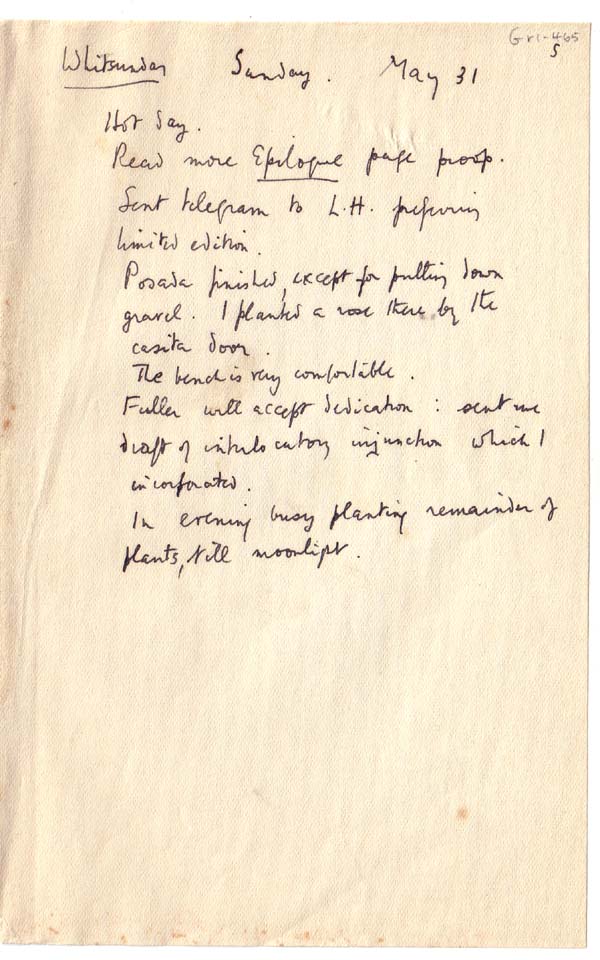 Gr1-465
5
Whitsunday Sunday. May 31
Hot day.
Read more Epilogue page proof.
Sent telegram to L.H. preferring
limited edition.
Posada finished, except for putting down
gravel. I planted a rose there by the
casita door.
The bench is very comfortable.
Fuller will accept dedication: sent me
draft of interlocutory injunction which I
incorporated.
In evening busy planting remainder of
plants, till moonlight.